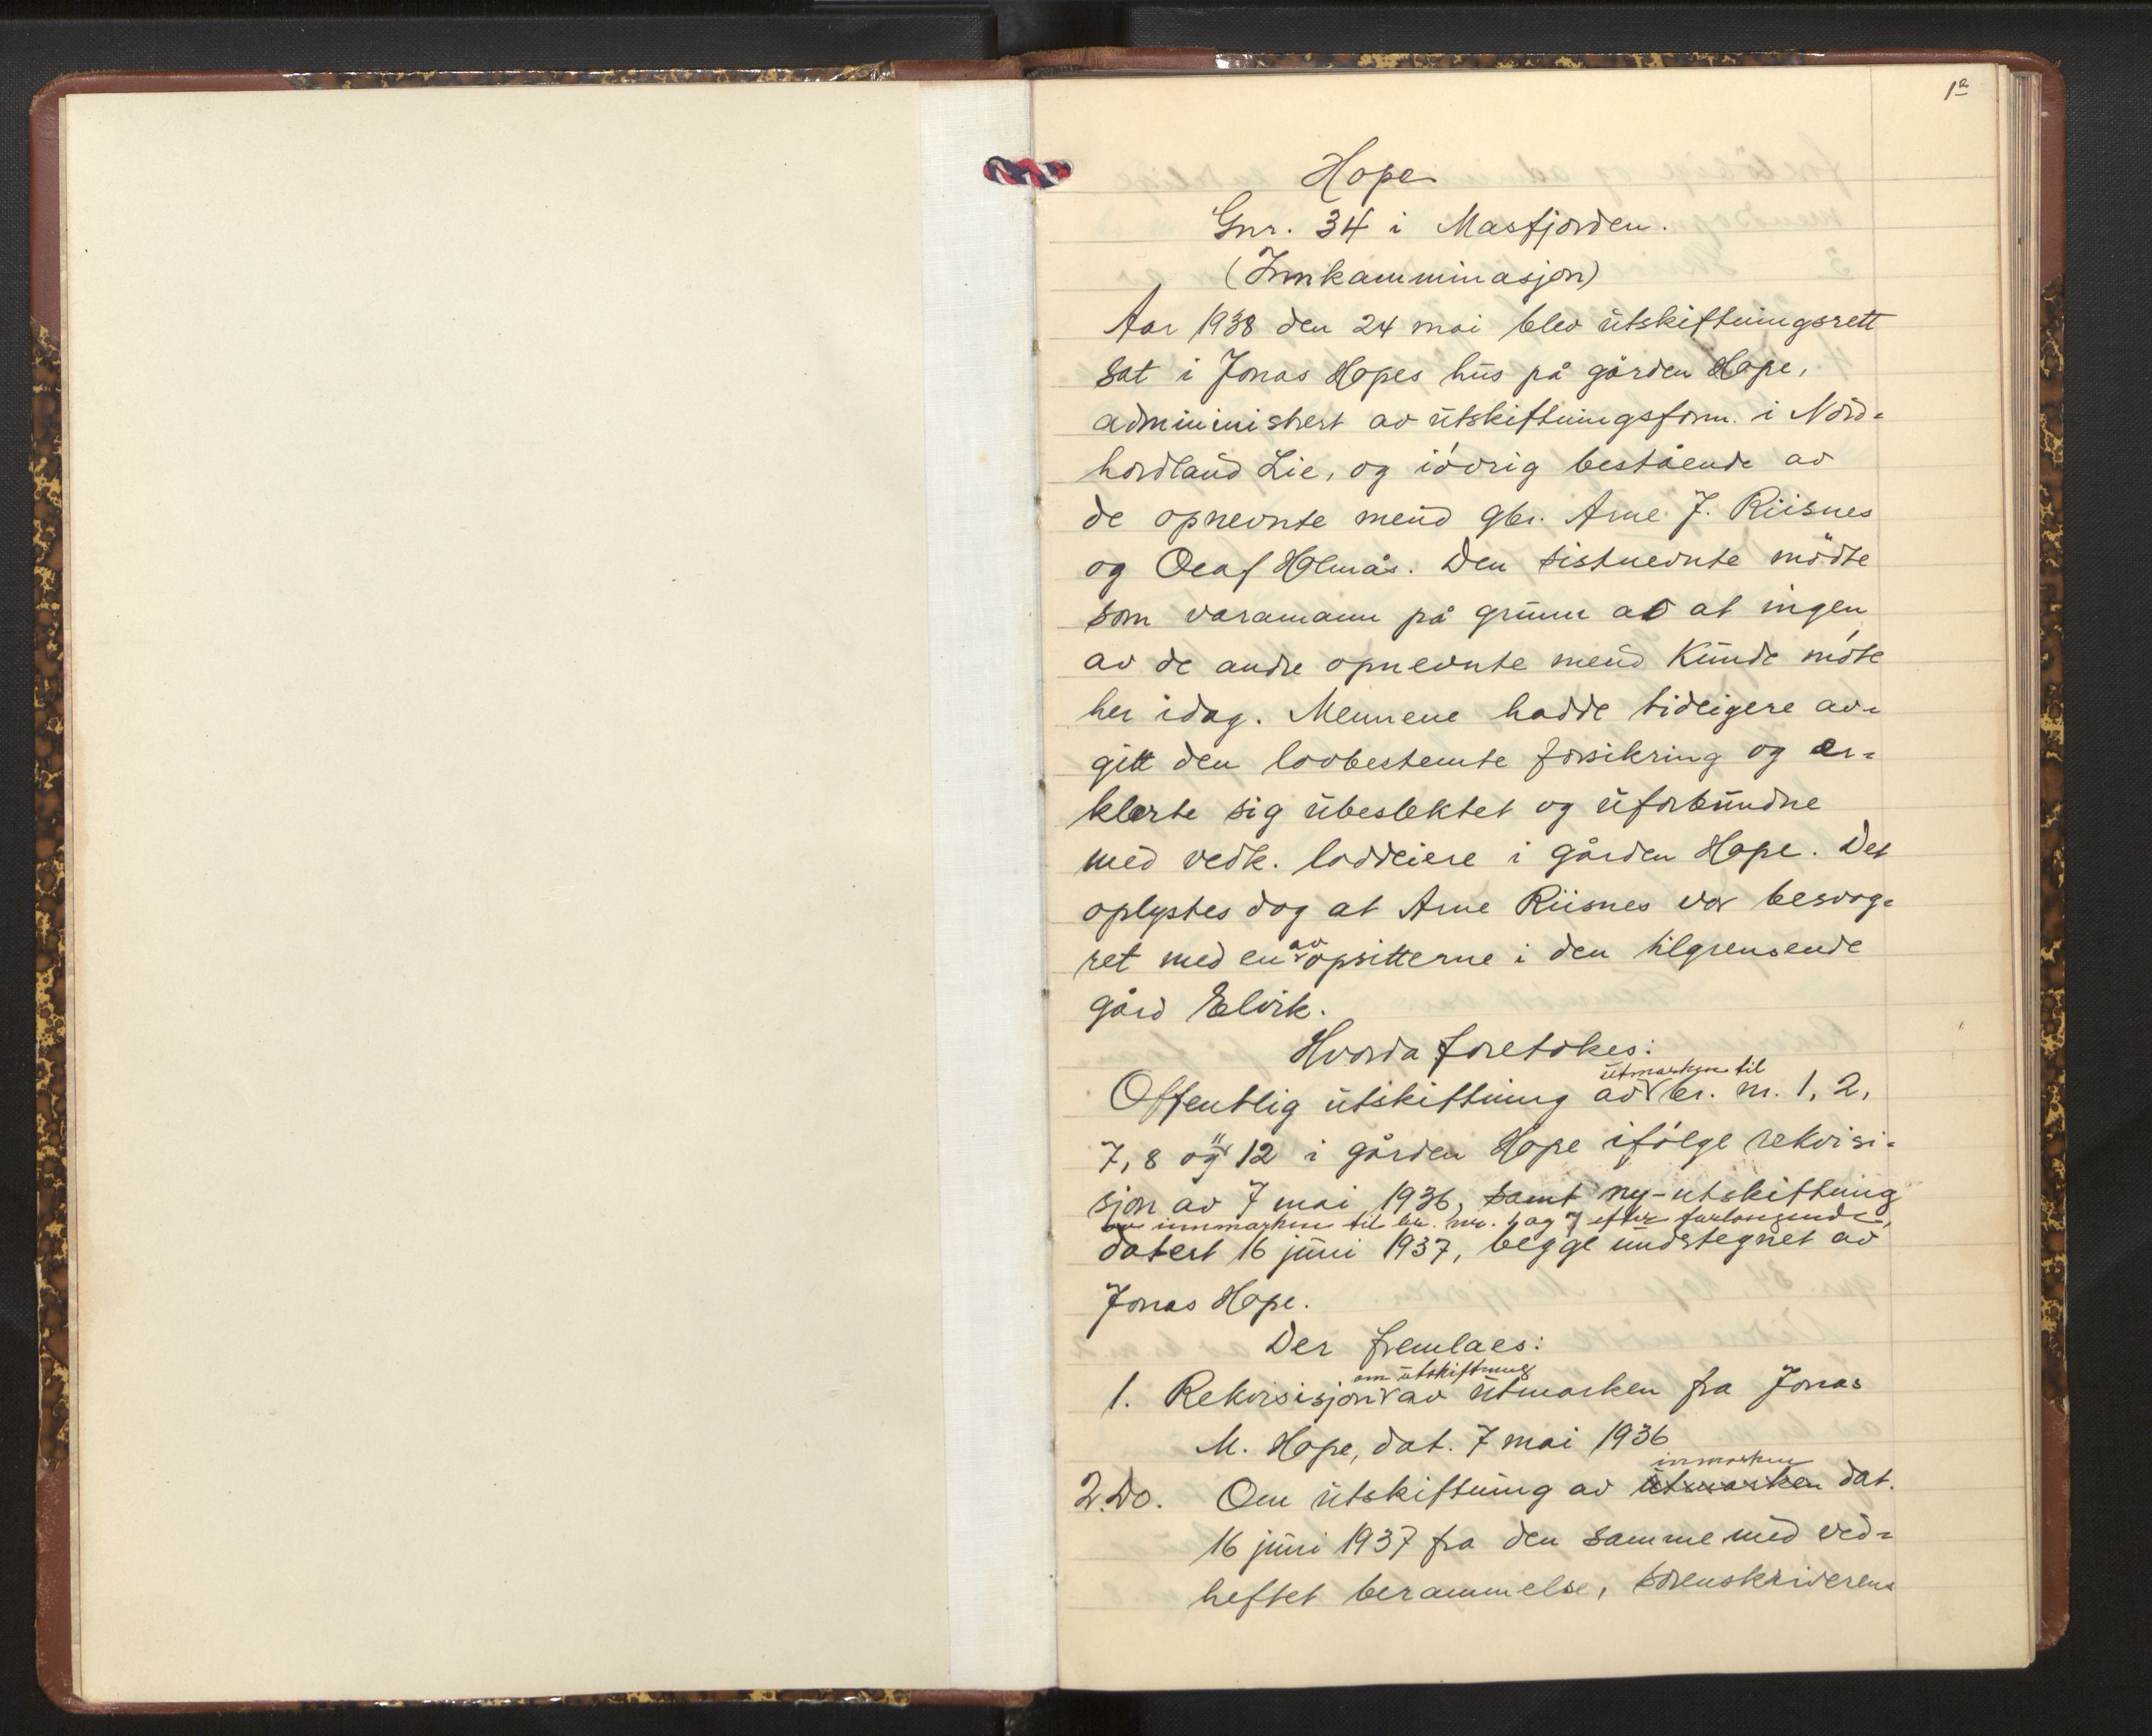 1a
Hope
Gnr. 34 i Masfjorden.
(Innkamminasjon)
Aar 1938 den 24 mai blev utskiftningsrett
sat i Jonas Hopes hus på gården Hope,
administrert av utskiftningsform. i Nord-
hordland Lie, og iøvrig bestående av
de opnevnte menn gbr. Arne J. Riisnes
og Olaf Holmås. Den sistnevnte mødte
som varamann på grunn av at ingen
av de andre opnevnte menn kunde møte
her idag. Mennene hadde tideigere av-
gitt den lovbestemte forsikring og er-
klærte sig ubeslektet og uforbundne
med vedk. loddeiere i gården Hope. Det
oplystes dog at Arne Riisnes var besvog-
ret med en av opsitterne i den tilgrensende
gård Elvik.
Hvorda foretokes:
Offentlig utskiftning av utmarken til br. nr. 1, 2,
7, 8 og 11 12 i gården Hope ifølge rekvisi-
sjon av 7 mai 1936, samt ny-utskiftning
av innmarken til br. nr. 1 og 7 efter forlangende,
datert 16 juni 1937, begge undertegnet av
Jonas Hope.
Der fremlaes:
1. Rekvisisjon om utskiftning av utmarken fra Jonas
M. Hope, dat. 7 mai 1936
2. Do. Om utskiftning av utmarken innmarken dat.
16 juni 1937 fra den samme med ved-
heftet berammelse, sorenskriverens